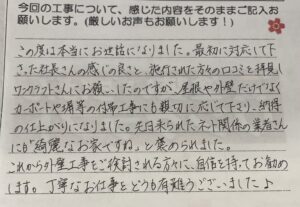 今回の工事について、感じた内容をそのままご記入お
願いします。(厳しいお声もお願いします！)
この度は本当にお世話になりました。最初に対応して下
さった社長さんの感じの良さと、施行された方々の口コミを拝見し
ワンクラフトさんにお願いしたのですが、屋根や外壁だけでなく
カーポートや塀等の付帯工事にも親切に応じて下さり、納得
の仕上がりになりました。先日来られたネット関係の業者さん
にも「綺麗なお家ですね」と褒められました。
これから外壁工事をご検討される方々に、自信を持ってお勧め
します。丁寧なお仕事をどうも有難うございました♪